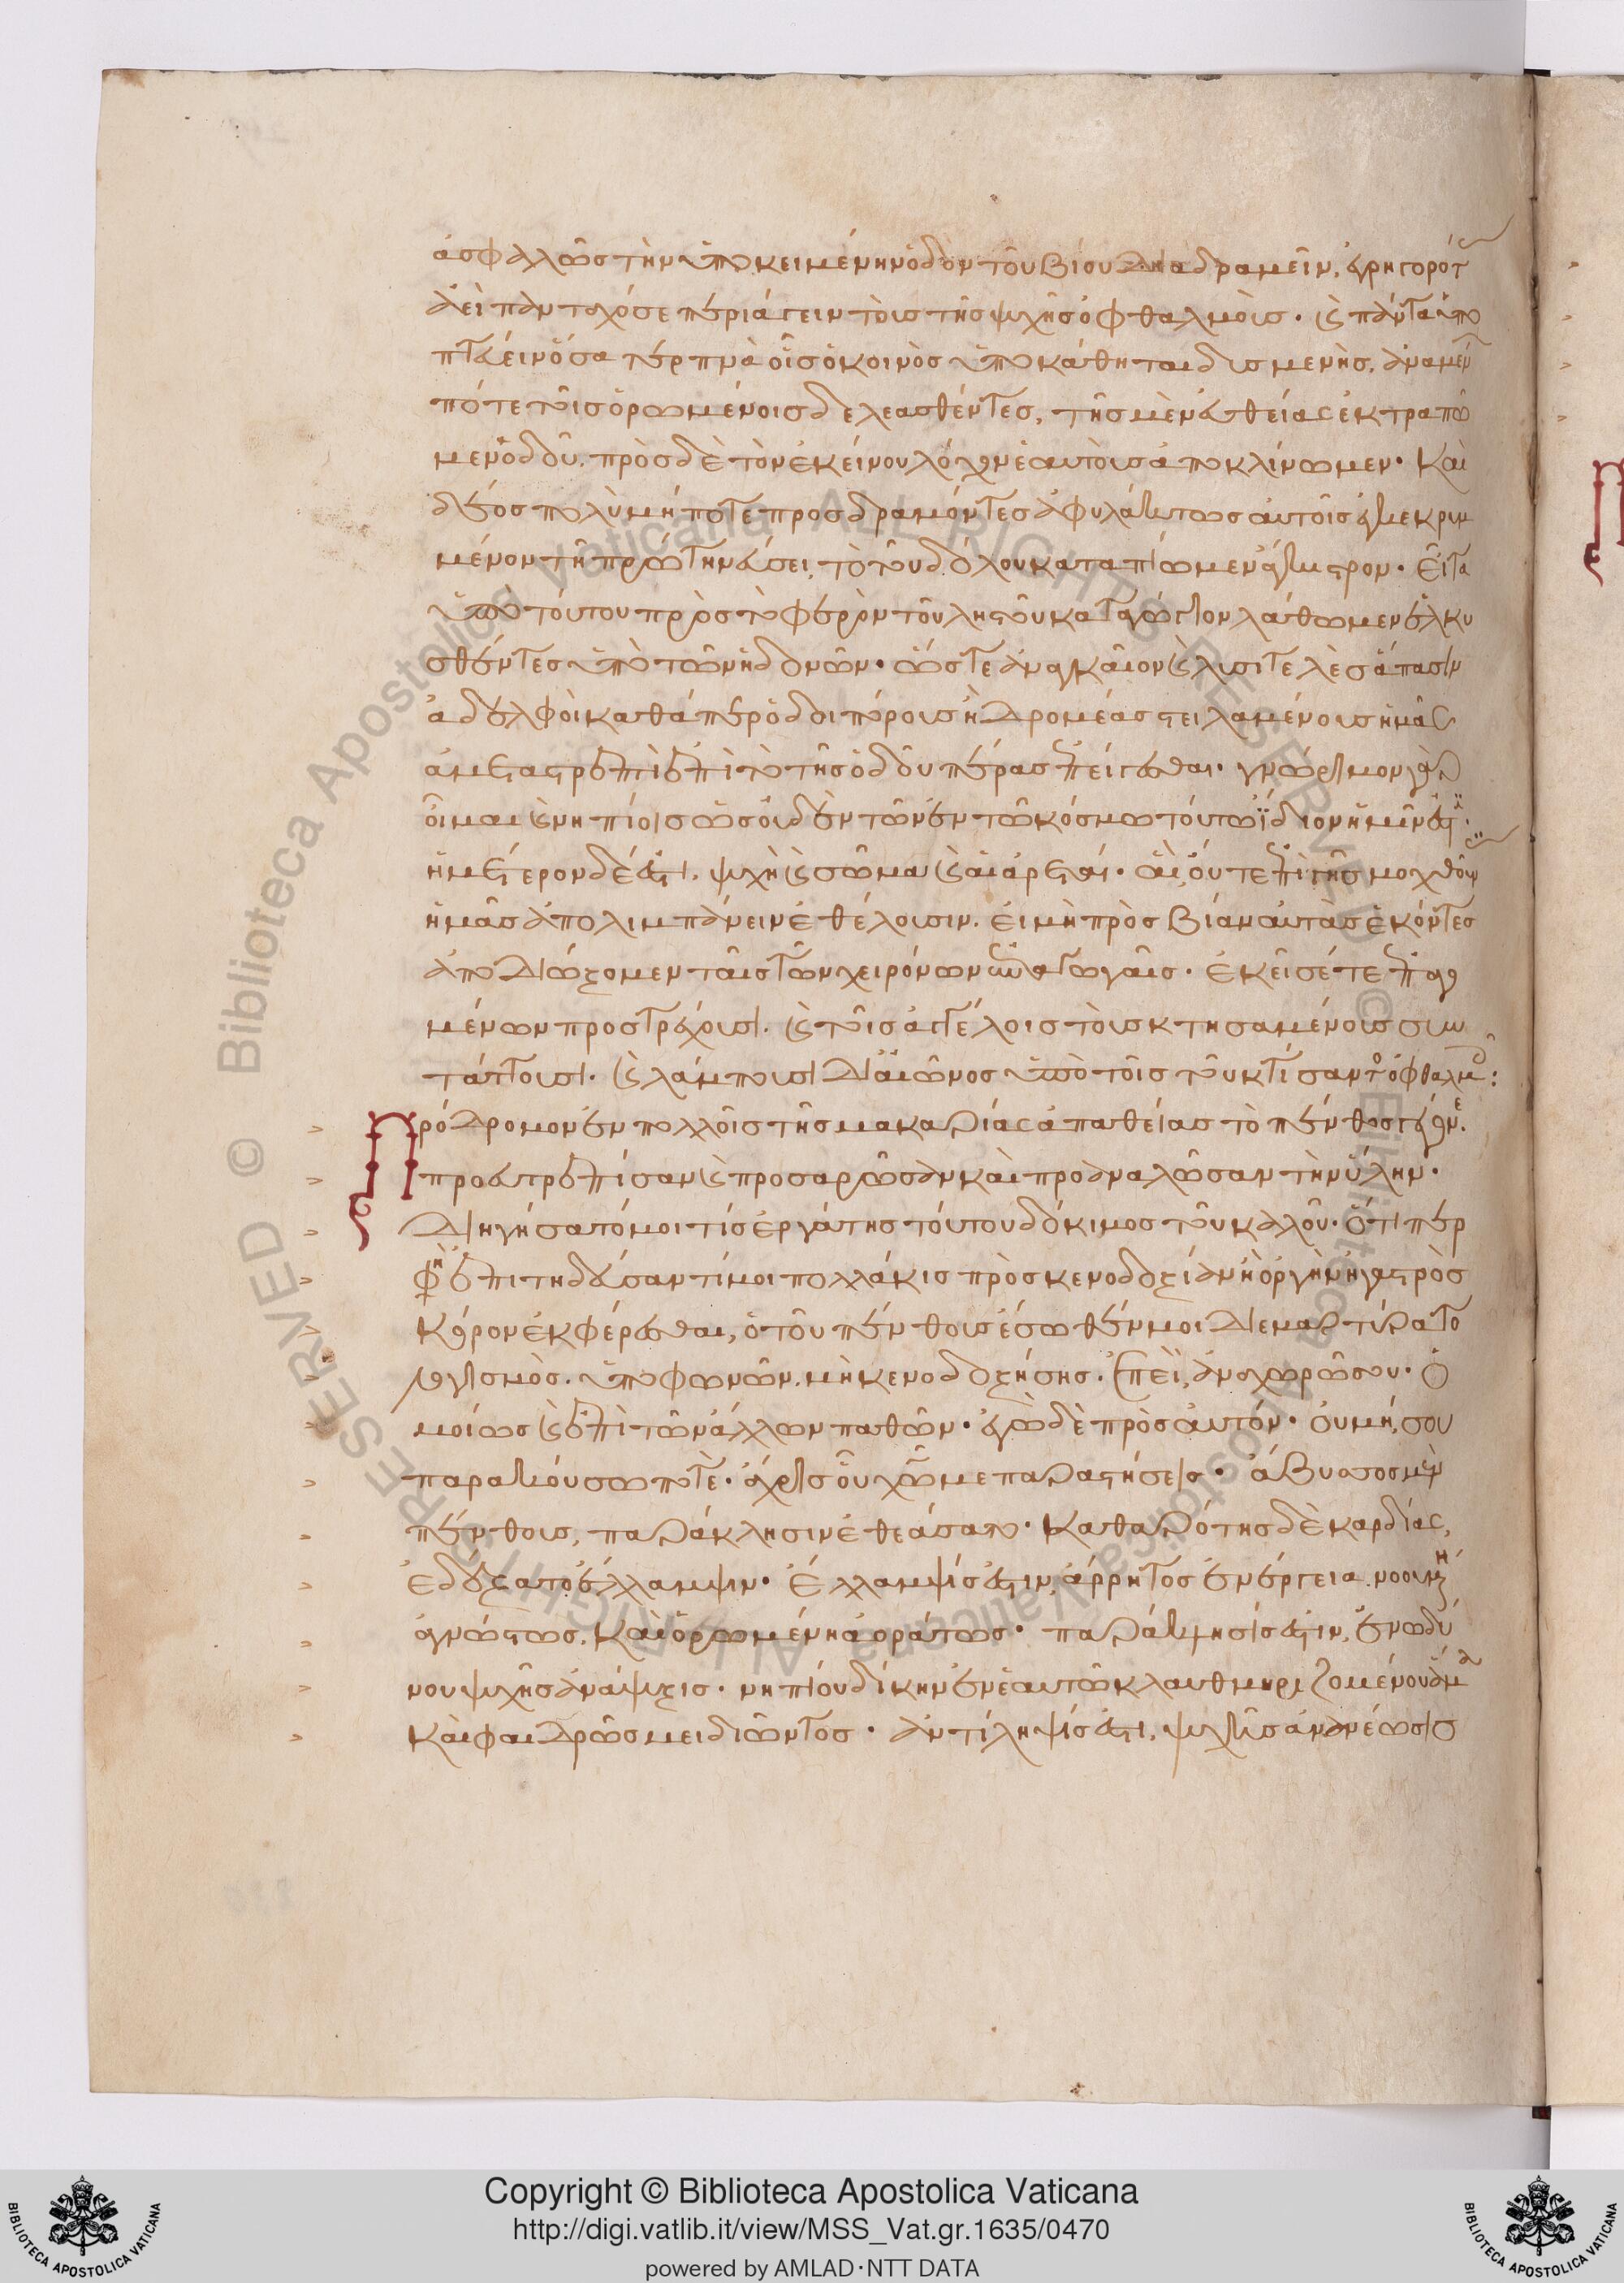 ἀσφαλλῶς τὴν ὑποκειμένην ὁδὸν τοῦ βίου διαδραμεῖν, ἐγρηγορότ
ἀεὶ πανταχόσε περιάγειν τοὺς τῆς ψυχῆς ὀφθαλμούς. καὶ πάντα ὑπο
πτεύειν ὅσα τερπνὰ οἷς ὁ κοινὸς ὑποκάθηται δυσμενής. ἵνα μὴ
πότε τοῖς ὁρωμένοις δελεασθέντες, τῆς μὲν εὐθείας ἐκτραπῶ
μεν ὁδοῦ. πρὸς δὲ τὸν ἐκείνου λόχον ἑαυτοὺς ἀποκλίνωμεν. Καὶ
δέος πολὺ μήποτε προσδραμόντες ἀφυλάκτως αὐτοῖς ἐγκεκρυμ
μένον τῇ πρώτῃ γεύσει, τὸ τοῦ δόλου καταπίωμεν ἄγκιστρον. Εἶτα
ὑπὸ τούτου πρὸς τὸ φοβερὸν τοῦ λῃστοῦ καταγώγιον λάθωμεν ἑλκυ
σθέντες ὑπὸ τῶν ἡδονῶν. ὥστε ἀναγκαῖον καὶ λυσιτελὲς ἅπασιν
ἀδελφοὶ καθάπερ ὁδοιπόρους ἢ δρομέας στειλαμένους ἡμᾶς
ἀμεταστρεπτὶ ἐπὶ τὸ τῆς ὁδοῦ πέρας ἐπείγεσθαι. γνώριμον γὰρ
οἶμαι καὶ νηπίοις ὡς οὐδὲν τῶν ἐν τῷ κόσμῳ τούτῳ ἴδιον ἡμῖν ἐστι.
ἡμέτερον δέ ἐστι, ψυχὴ καὶ σῶμα καὶ αἱ ἀρεταί. αἳ οὔτε ἐπὶ γῆς μοχθοῦν
ἡμᾶς ἀπολιμπάνειν ἐθέλουσιν. εἰ μὴ πρὸς βίαν αὐτὰς ἑκόντες
ἀποδιώξομεν ταῖς τῶν χειρόνων ἐπαγωγαῖς. ἐκεῖσέ τε ἐπειγο
μένων προστρέχουσι. καὶ τοῖς ἀγγέλοις τοὺς κτησαμένους συν
τάττουσι. καὶ λάμπουσι δι' αἰῶνος ὑπὸ τοῖς τοῦ κτίσαντος ὀφθαλμοῖς:
Πρόδρομον ἐν πολλοῖς τῆς μακαρίας ἀπαθείας τὸ πένθος γέγονε.
προευτρεπίσαν καὶ προσαρῶσαν καὶ προαναλῶσαν τὴν ὕλην.
Διηγήσατό μοί τις ἐργάτης τούτου δόκιμος τοῦ καλοῦ. ὅτι περ
φησὶν ἐπιτηδεύσαντί μοι πολλάκις πρὸς κενοδοξίαν ἢ ὀργὴν ἢ γαστρὸς
κόρον ἐκφέρεσθαι, ὁ τοῦ πένθους ἔσωθέν μοι διεμαρτύρατο
λογισμὸς. ὑποφωνῶν. μὴ κενοδοξήσῃς. ἐπεὶ, ἀναχωρῶ σου. Ὁ
μοίως καὶ ἐπὶ τῶν ἄλλων παθῶν. ἐγὼ δὲ πρὸς αὐτόν. οὐ μή σου
παρακούσω ποτὲ. ἄχρις οὗ χῷ με παραστήσεις. ἄβυσσος μὲν
πένθους, παράκλησιν ἐθεάσατο. Καθαρότης δὲ καρδίας,
ἐδέξατο ἔλλαμψιν. Ἔλλαμψίς ἐστιν, ἄρρητος ἐνέργεια. νοουμένη
ἀγνώστως. Καὶ ὁρωμένη ἀοράτως. παράκλησίς ἐστιν, ἐνωδύ
νου ψυχῆς ἀνάψυξις. νηπίου δίκην ἐν ἑαυτῷ κλαυθμυριζομένου ἅμα
Καὶ φαιδρῶς μειδιῶντος. ἀντίληψίς ἐστι, ψυχῆς ἀνανέωσις
Copyright © Biblioteca Apostolica Vaticana
http://digi.vatlib.it/view/MSS_Vat.gr.1635/0470
powered by AMLAD·NTT DATA
BIBLIOTECA APOSTOLICA VATICANA
BIBLIOTECA APOSTOLICA VATICANA
© Biblioteca Apostolica Vaticana ALL RIGHTS RESERVED
© Biblioteca Apostolica Vaticana ALL RIGHTS RESERVED